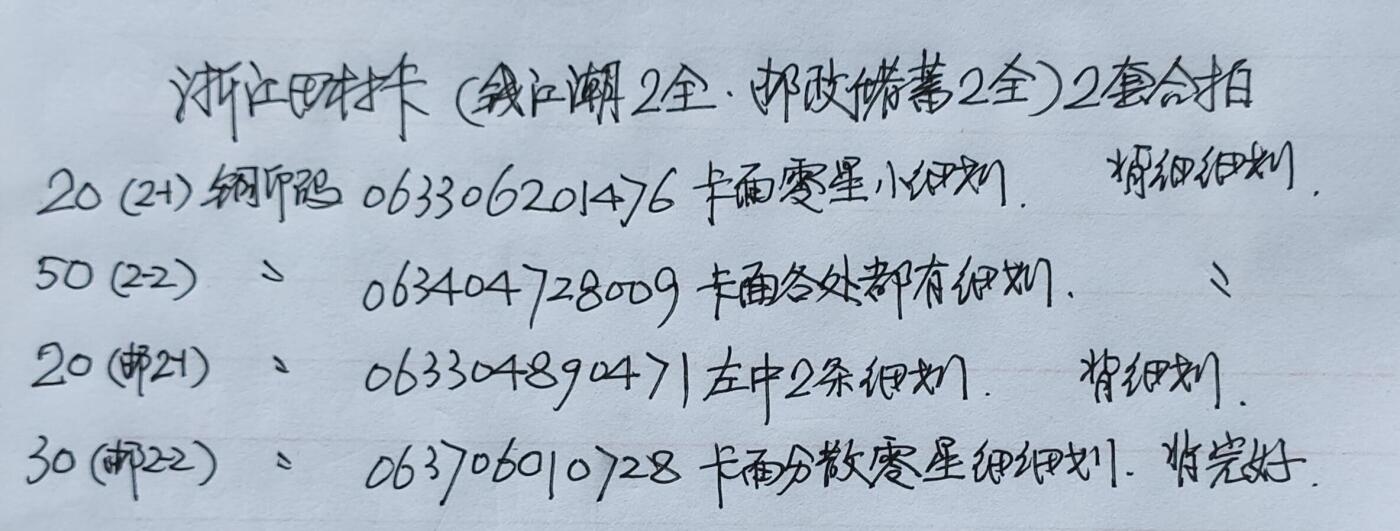 浙江田村卡（钱江潮2全·邮政储蓄2全）2套合拍
20（2-1）钢印码 063306201476 卡面零星小细划. 背细细划.
50（2-2） 〃 063404728009 卡面各处都有细划. 〃
20（邮2-1） 〃 063304890471 左中2条细划. 背细划.
30（邮2-2） 〃 063706010728 卡面分散零星细细划. 背完好.